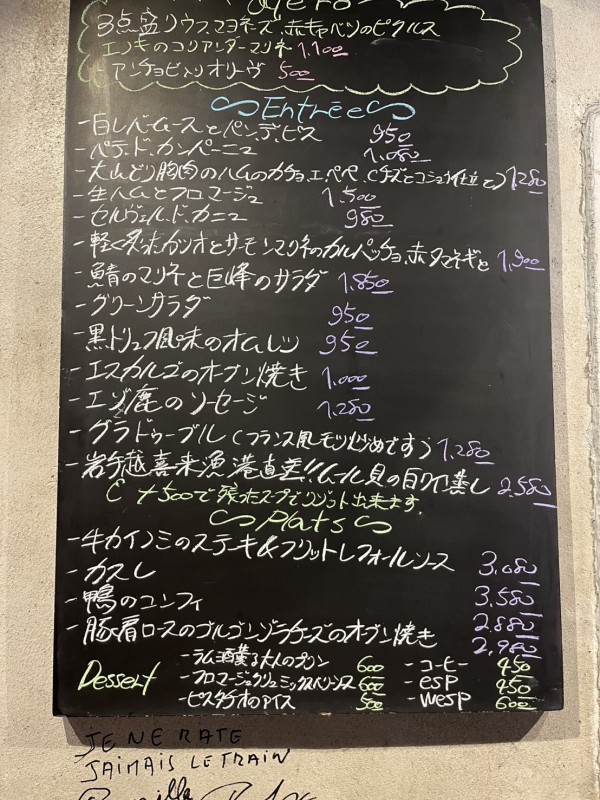 3点盛り ウフ・マヨネーズ、赤キャベツのピクルス
エリンギのコリアンダーマリネ 1,100
- アンチョビ入りオリーヴ 500
Entrée
- 白レバームースとパン・デ・ピス 950
- パテ・ド・カンパーニュ 1,080
- 大山どり胸肉のハムのカチョ・エ・ペペ (チーズとコショウ仕立て) 1,280
- 生ハムとフロマージュ 1,500
- セルヴェル・ド・カニュ 980
- 軽く炙ったカツオとサーモンマリネのカルパッチョ、赤タマネギと 1,900
- 鯖のマリネと巨峰のサラダ 1,850
- グリーンサラダ 950
- 黒トリュフ風味のオムレツ 950
- エスカルゴのオーブン焼き 1,000
- エゾ鹿のソーセージ 1,280
- グラ・ドゥーブル (フランス風モツ炒めです) 1,280
- 岩手越喜来漁港直送!!ムール貝の白ワイン蒸し 2,580
+500で残ったスープでリゾット出来ます。
Plats
- 牛カイノミのステーキ&フリット レフォールソース 3,080
- カスレ 3,580
- 鴨のコンフィ 2,880
- 豚肩ロースのゴルゴンゾーラチーズのオーブン焼き 2,980
Dessert
- ラム酒薫る大人のプリン 600 - コーヒー 450
- フロマージュクリュ ミックスベリーソース 600 - esp 450
- ピスタチオのアイス 500 - wesp 600
JE NE RATE
JAIMAIS LE TRAIN